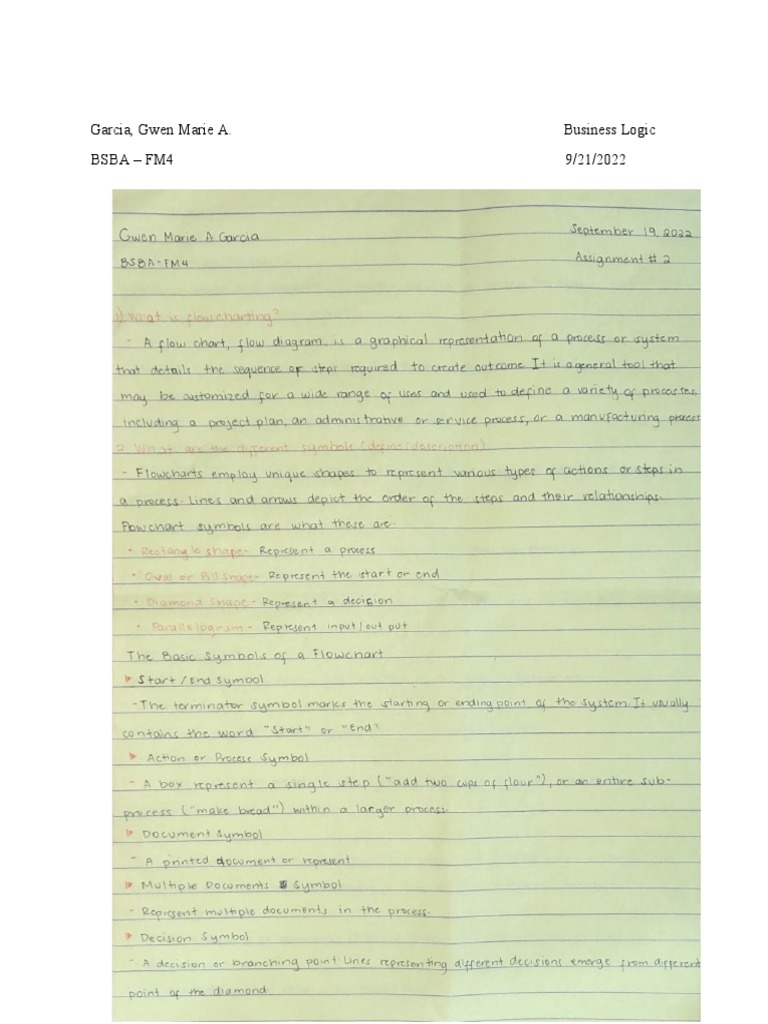 Garcia, Gwen Marie A. Business Logic
BSBA – FM4 9/21/2022
Gwen Marie A Garcia September 19, 2022
BSBA-FM4 Assignment # 2
1) What is flowcharting?
- A flow chart, flow diagram, is a graphical representation of a process or system
that details the sequence of steps required to create outcome It is a general tool that
may be customized for a wide range of uses and used to define a variety of processes,
including a project plan, an administrative or service process, or a manufacturing process
2. What are the different symbols (define/description)
- Flowcharts employ unique shapes to represent various types of actions or steps in
a process. Lines and arrows depict the order of the steps and their relationships.
Flowchart symbols are what these are.
• Rectangle shape- Represent a process
• Oval or Pill Shape- Represent the start or end
• Diamond Shape - Represent a decision
• Parallelogram - Represent input/out put
The Basic Symbols of a Flowchart
Start/End Symbol
- The terminator symbol marks the starting or ending point of the system. It usually
contains the word "Start" or "End"
Action or Process Symbol
- A box represent a single step ("add two cups of flour"), or an entire sub-
process ("make bread") within a larger process.
Document Symbol
- A printed document or represent
Multiple Documents Symbol
- Represent multiple documents in the process.
Decision Symbol
- A decision or branching point. Lines representing different decisions emerge from different
point of the diamond.